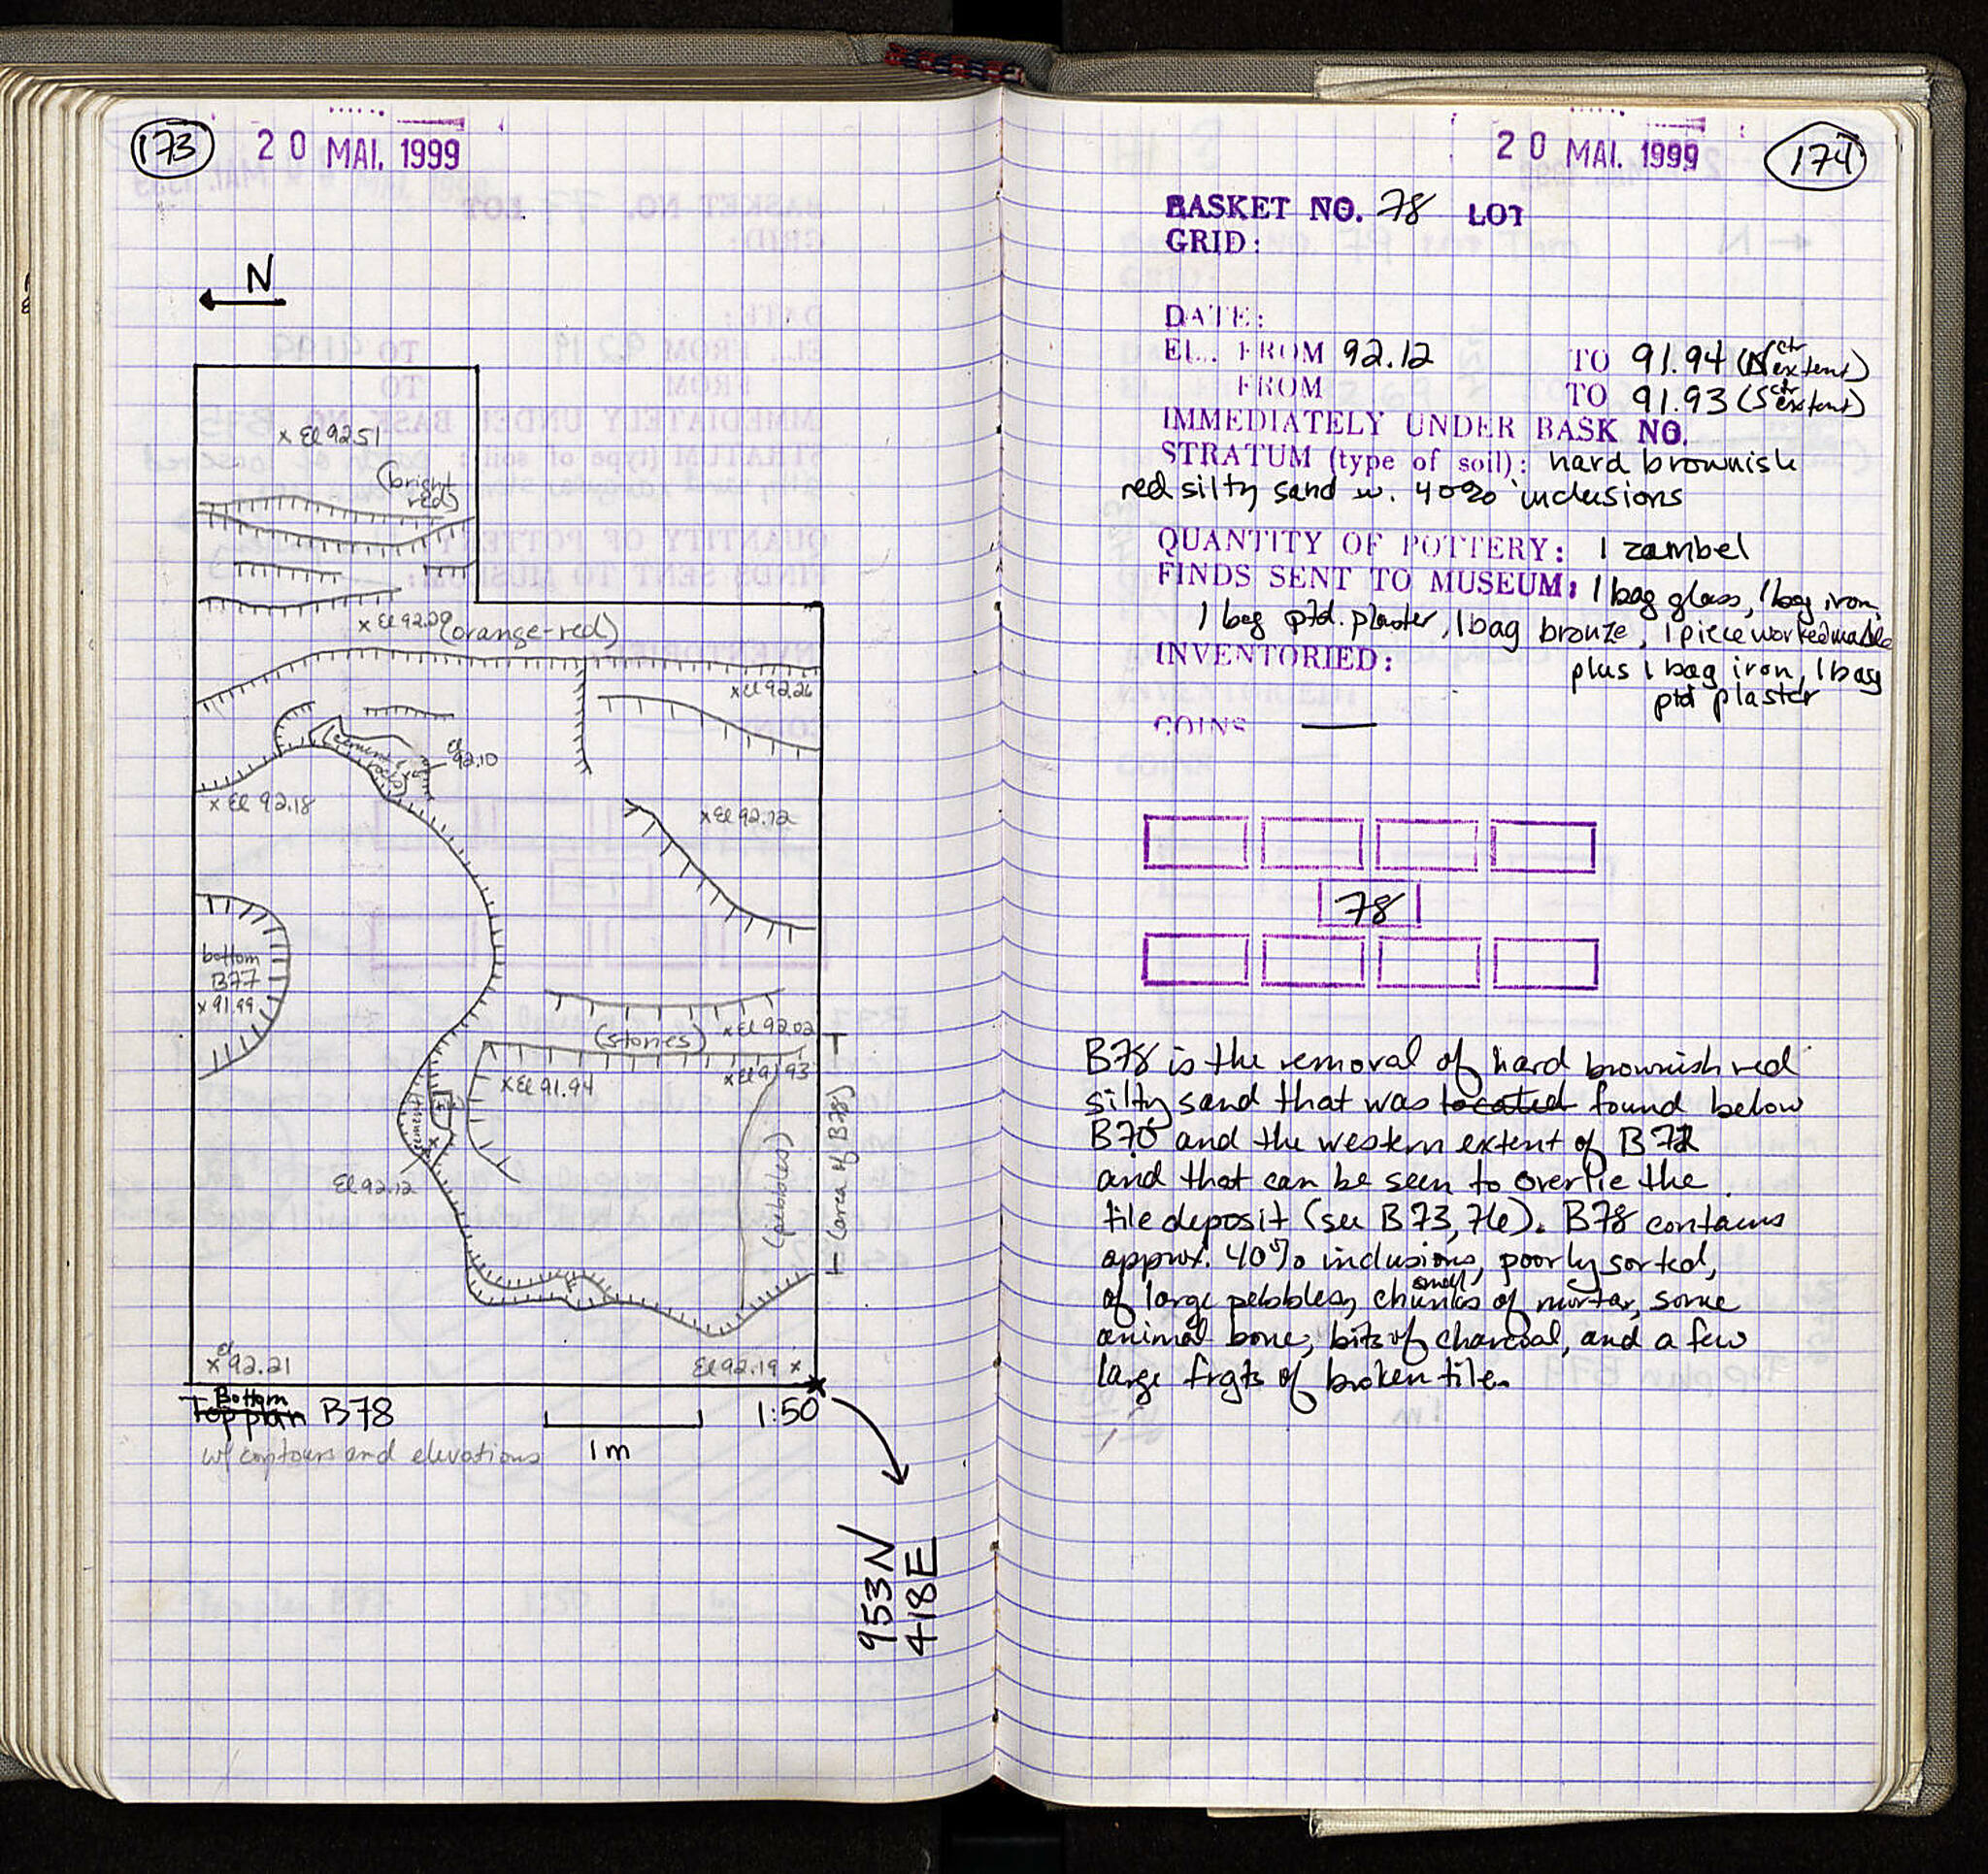 173
20 MAI. 1999
N
x El 92.51
(bright
red)
x El 92.29 (orange-red)
x El 92.26
El
92.10
x El 92.18
x El 92.12
bottom
B77
x 91.99
(stones)
x El 92.02
x El 91.94
x El 91.93
(area of B78)
(pebbles)
El 92.12
El
x 92.21
El 92.19 x
Bottom
Top plan B78
1:50
w/ contours and elevations
1 m
953N
418E
20 MAI. 1999
174
BASKET NO. 78 LOT
GRID:
DATE:
EL. FROM 92.12 TO 91.94 (N ctr extent)
FROM TO 91.93 (S ctr extent)
IMMEDIATELY UNDER BASK NO.
STRATUM (type of soil): hard brownish
red silty sand w. 40% inclusions
QUANTITY OF POTTERY: 1 zambel
FINDS SENT TO MUSEUM: 1 bag glass, 1 bag iron,
1 bag ptd. plaster, 1 bag bronze, 1 piece worked marble
INVENTORIED: plus 1 bag iron, 1 bag
ptd plaster
COINS —
78
B78 is the removal of hard brownish red
silty sand that was located found below
B70 and the western extent of B72
and that can be seen to overlie the
tile deposit (see B73, 76). B78 contains
approx. 40% inclusions, poorly sorted,
of large pebbles, small chunks of mortar, some
animal bone, bits of charcoal, and a few
large frgts of broken tile.